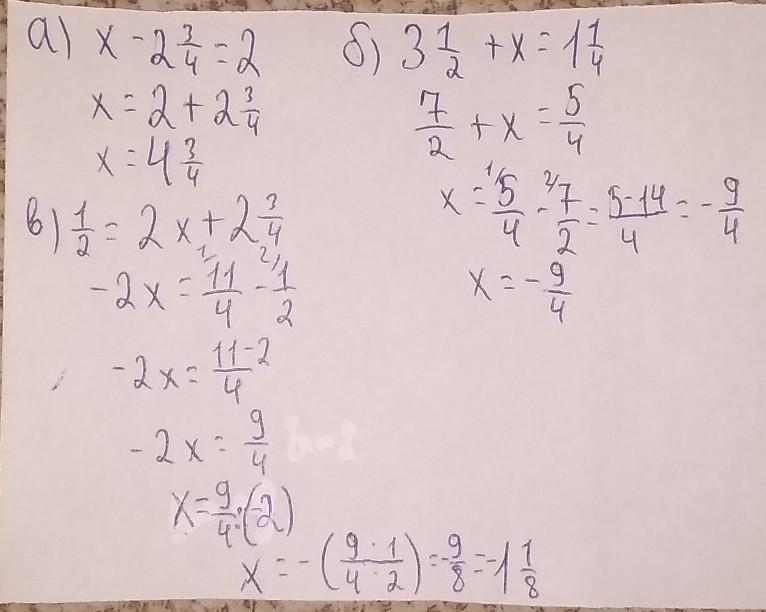 а) x - 2 3/4 = 2
x = 2 + 2 3/4
x = 4 3/4
б) 3 1/2 + x = 1 1/4
7/2 + x = 5/4
x = 1/ 5/4 - 2/ 7/2 = 5-14/4 = - 9/4
x = - 9/4
в) 1/2 = 2x + 2 3/4
-2x = 1/ 11/4 - 2/ 1/2
-2x = 11-2/4
-2x = 9/4
x = 9/4 : (-2)
x = - (9·1/4·2) = - 9/8 = -1 1/8